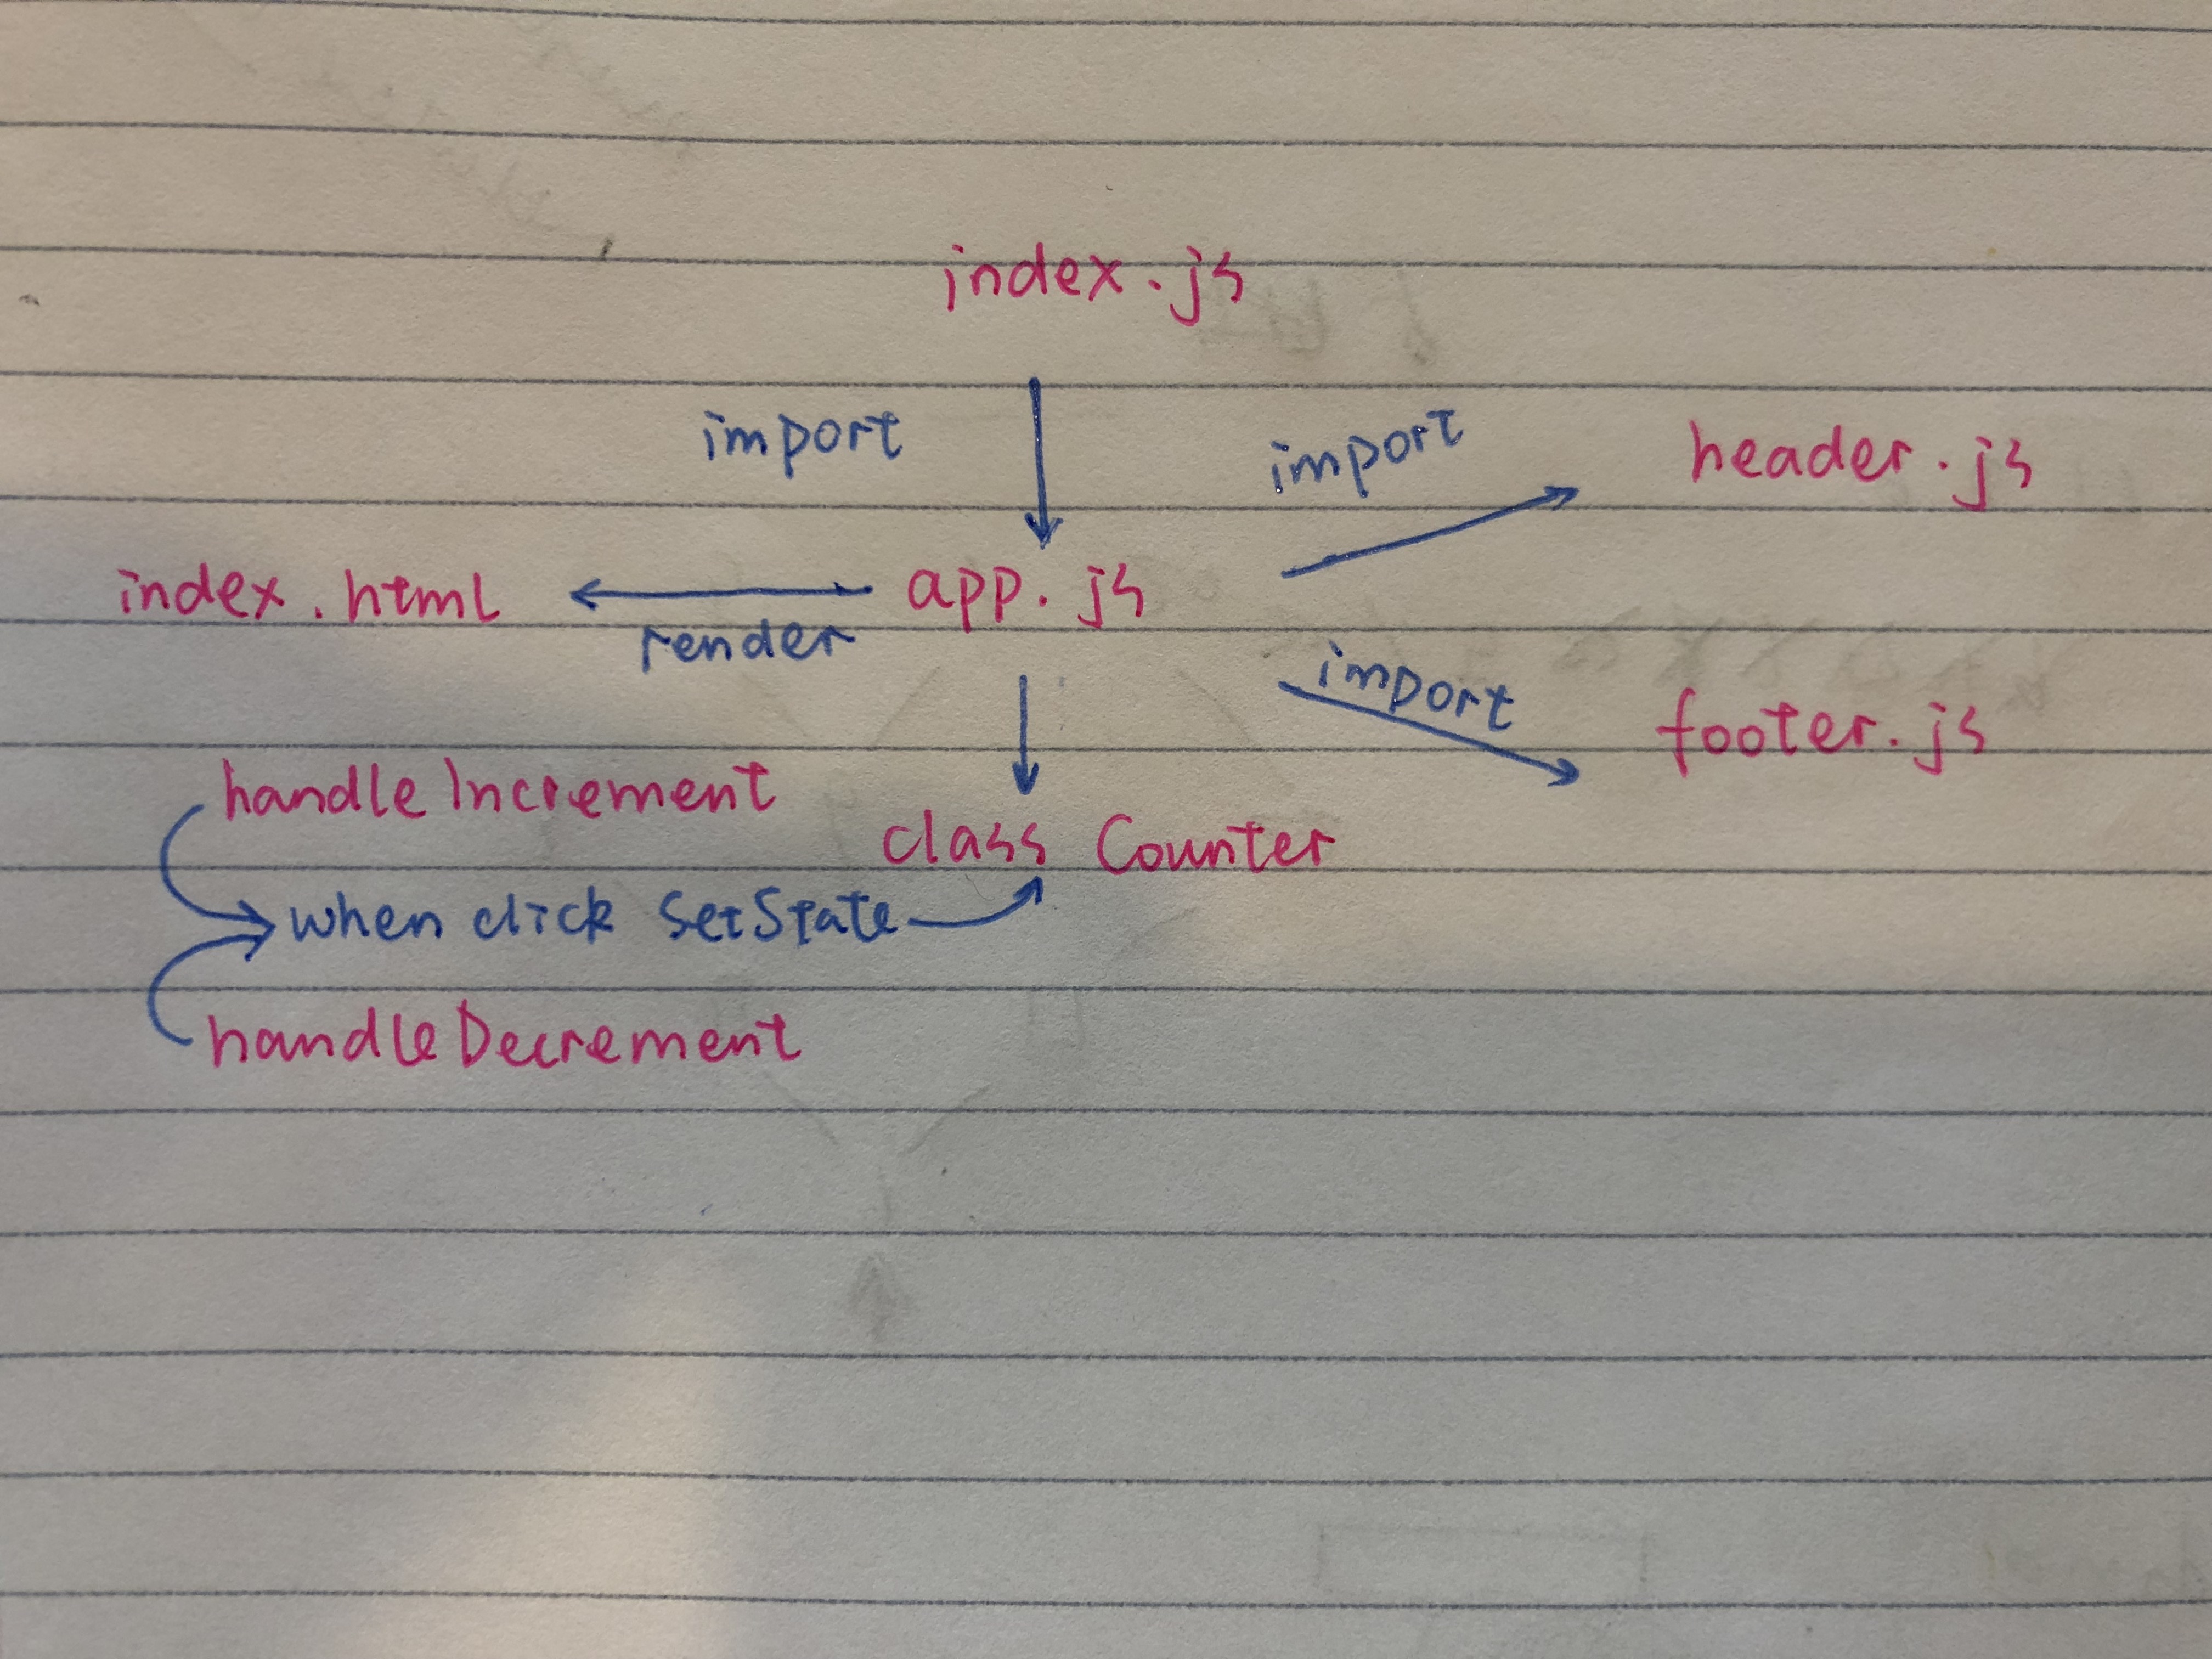 index.js
import
import
header.js
index.html
app.js
render
import
footer.js
handleIncrement
class Counter
when click setState
handleDecrement